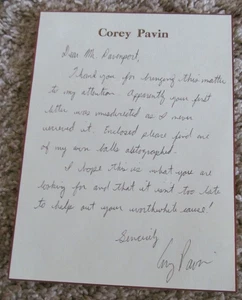 Corey Pavin
Dear Mr. Davenport,
Thank you for bringing this matter
to my attention. Apparently your first
letter was misdirected as I never
received it. Enclosed please find one
of my own balls autographed.
I hope this is what you are
looking for and that it isn't too late
to help out your worthwhile cause!
Sincerely
Corey Pavin